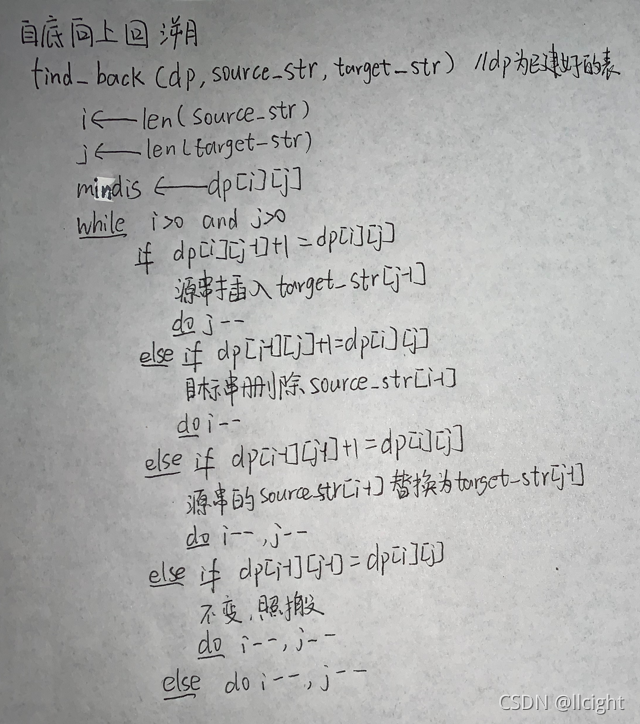 自底向上回溯
find_back (dp, source_str, target_str) //dp为已建好的表
i ← len(source_str)
j ← len(target-str)
mindis ← dp[i][j]
while i>0 and j>0
if dp[i][j-1]+1=dp[i][j]
源串插入target_str[j-1]
do j--
else if dp[i-1][j]+1=dp[i][j]
目标串删除source_str[i-1]
do i--
else if dp[i-1][j-1]+1=dp[i][j]
源串的source_str[i-1]替换为target-str[j-1]
do i--,j--
else if dp[i-1][j-1]=dp[i][j]
不变,照搬
do i--,j--
else do i--,j--
CSDN @llcight